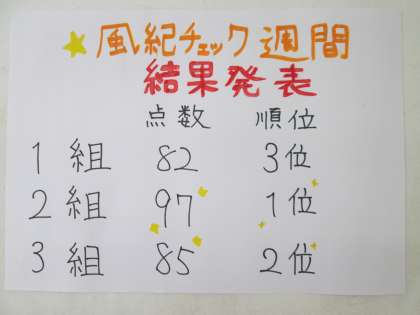 ★風紀チェック週間
結果発表
点数 順位
1組 82 3位
2組 97 1位
3組 85 2位